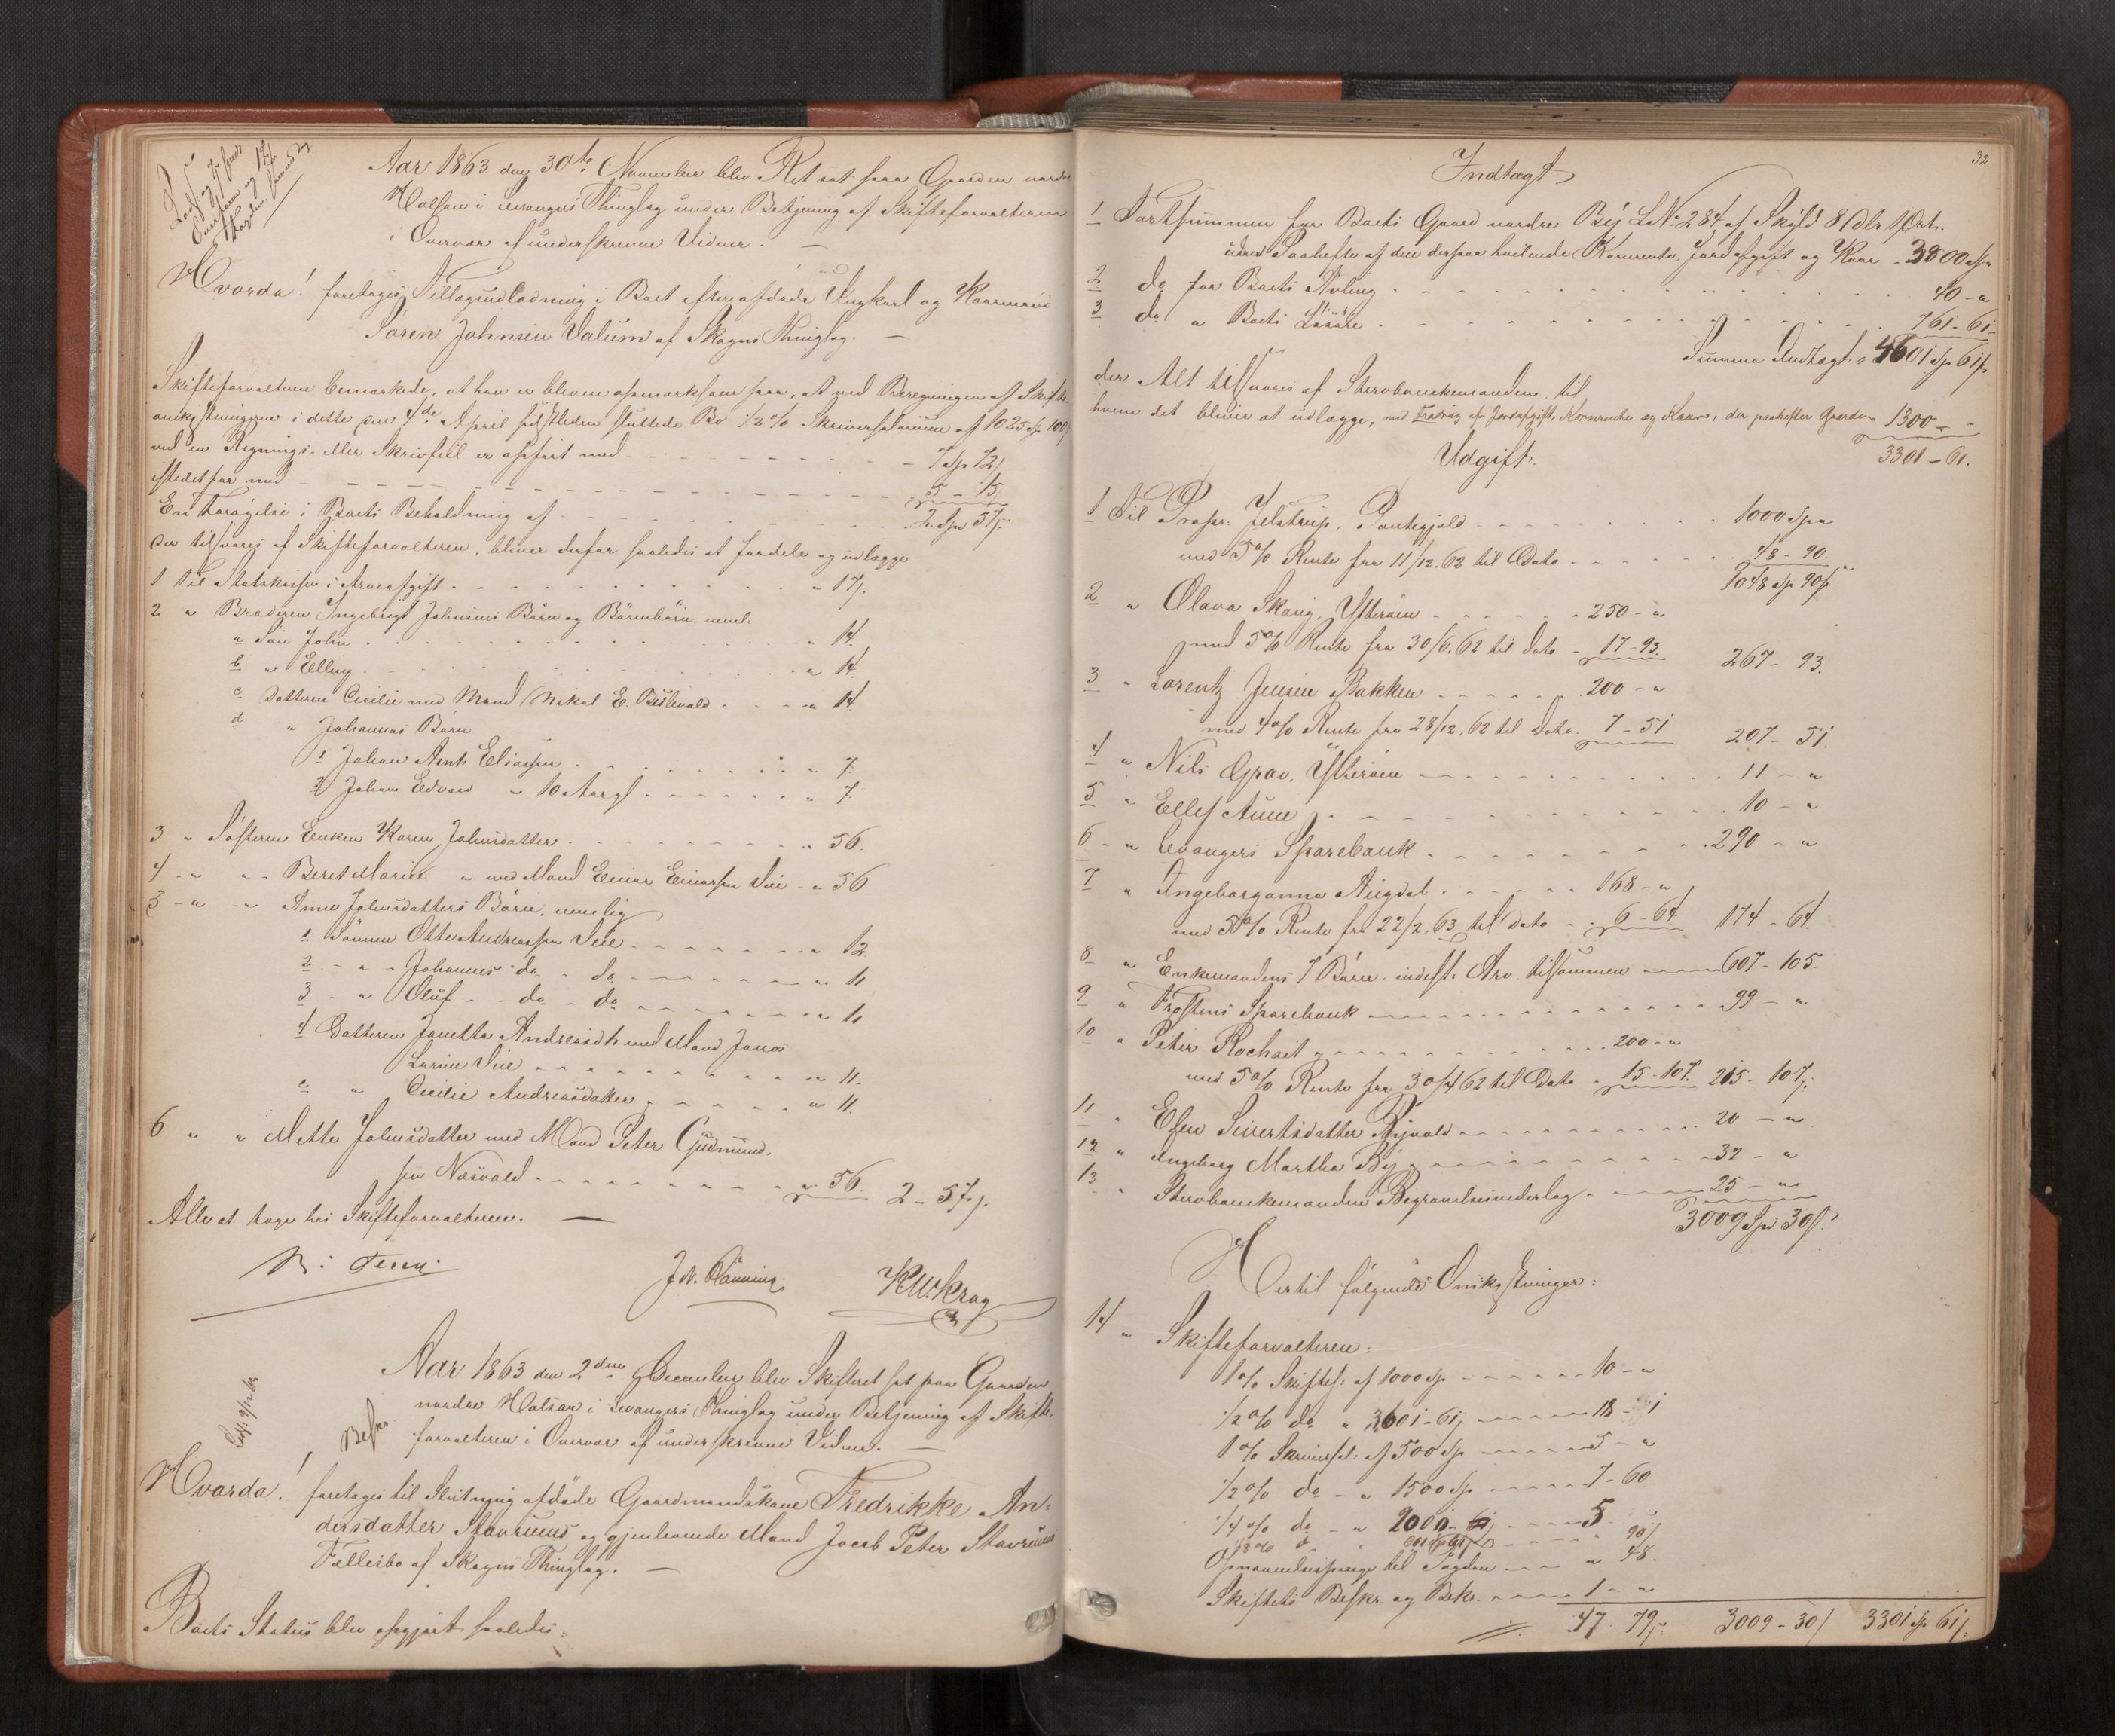 Aar 1863 den 30te November blev Ret sat paa Gaarden nordre
Halsan i Levangers Thinglag under Betjening af Skifteforvalteren
i Overvær af underskrevne Vidner. —
Hvorda! foretages Tillægsudlodning i Boet efter afdøde Ungkarl og Kaarmand
Søren Johnsen Valum af Skogns Thinglag. —
Skifteforvalteren bemærkede, at han er bleven opmærksom paa, at ved Beregningen af Skifte-
omkostningerne i dette den 4de April sidstleden sluttede Bo ½ % Skriversalarium af 1025 Sp 100
ved en Regnings- eller Skrivfeil er opført med - - - 7 Sp 72
istedetfor med - - - 5 - 15
En Forøgelse i Boets Beholdning af - - - 2 Spd 57
der tilsvares af Skifteforvalteren, bliver derfor saaledes at fordele og udlægge
1 Til Statskassen i Arveafgift - - - " 17
2 " Broderen Ingebrigt Johnsens Børn og Børnebørn neml.
a Søn John - - - " 14.
b " Elling - - - " 14.
c Datteren Cicilie med Mand Nikal E. - - - " 14
d " Johannas Børn
1 Johan Arnt Eliassen - - - " 7.
2 Johan Edvard " 10 Aar gl - - - " 7.
3 " Søsteren Enken Karen Johnsdatter - - - " 56.
4 " " Beret Marie " med Mand Einar Einarsen - " 56
3 " " Anne Johnsdatters Børn, nemlig
1 Sønnen Otto Andreassen - - - " 12
2 - " - Johannes do - do - - - " 11
3 - " Oluf - - do - do - - - " 11
4 Datteren Janetta Andreasdtr med Mand
- - - " 11.
e " Cicilie Andreasdatter - - - " 11.
6 " " Mette Johnsdatter med Mand Peter Gudmund-
sen Næsvold - - - " 56. 2 - 57
Alle at tage hos Skifteforvalteren. —
KW. Krag
Aar 1863 den 2den December blev Skifteret sat paa Gaarden
nordre Halsan i Levangers Thinglag under Betjening af Skifte-
forvalteren i Overvær af underskrevne Vidner. —
Hvorda! foretages til Slutning afdøde Gaardmandskone Fredrikke An-
dersdatter Stavrums og gjenlevende Mand Jacob Peter Stavrums
Fællesbo af Skogns Thinglag. —
Boets Status blev opgjort saaledes:
32.
Indtægt
1 for Boets Gaard nordre By LNo 284 af Skyld 8 Dlr 1 Ort.
uden Paahefte af den derpaa hvilende Kornrente, Jordafgift og Kaar - 3800 Sp
2 do for Boets Avling - - - 40 - "
3 do " Boets Løsøre - - - 761 - 61
Summa Indtægt = 4601 Sp 61
der Alt tilsvares af Stervboenkemanden til
hvem det bliver at udlægge, med Fradrag af Jordafgift, Kornrente og Kaar, der paahefter Gaarden 1300 - "
3301 - 61.
Udgift.
1 Til Propr. Jelstrup, Pantegjæld - - - 1000 Spd
med 5 % Rente fra 11/12. 62 til Dato - - - 48 - 90.
1048 Sp 90
2 " Olava Skavig, Ytterøen - - - 250 - "
med 5 % Rente fra 30/6. 62 til Dato - 17 - 93. 267 - 93.
3 " Lorentz Jensen Bakken - - - 200 - "
med 4 % Rente fra 28/12. 62 til Dato. 7 - 51 207 - 51.
4 " Nils Grav, Ytterøen - - - 11 - "
5 " Ellef Aune - - - 10 - "
6 - " Levangers Sparebank - - - 290 - "
7 " Ingeborganna Augdal - - - 168 - "
med 5 % Rente fra 22/2. 63 til Dato - - 6 - 64. 174 - 64.
8 " Enkemandens 7 Børn indest. Arv tilsammen - - - 607 - 105.
9 " Frostens Sparebank - - - 99 - "
10 " Peter Rochseit - - - 200 - "
med 5 % Rente fra 30/4 62 til Dato - 15 - 107. 215 - 107
11 " Sivertsdatter - - - 20 - "
12 " Ingeborg Martha By - - - 32 - "
13 " Stervboenkemanden Begravelsesvederlag - - - 25 - "
3009 Spd 30
Hertil følgende Omkostninger:
14 " Skifteforvalteren:
1 % Skiftes: af 1000 Sp - - - 10 - "
½ % do " 3601 - 61 - - - 18 - 1
1 % Skriversal: af 500 Sp - - - 5 - "
½ % do - " 1500 Sp - - - 7 - 60
¼ % do - " 2000 - - - 5
90
til Fogden - - - " 48.
Skiftets Beskr. og Bekr. - - - 1 - "
47 - 79 3009 - 30 3301 Sp 61